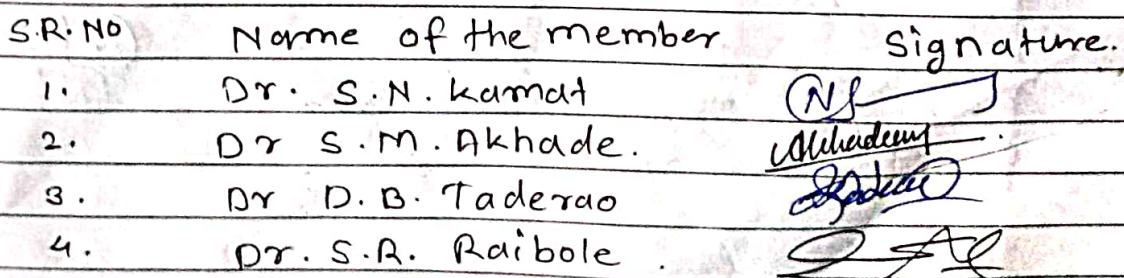 S.R. No Name of the member Signature.
1. Dr. S.N. Kamat
2. Dr S.M. Akhade.
3. Dr D.B. Taderao
4. Dr. S.R. Raibole.